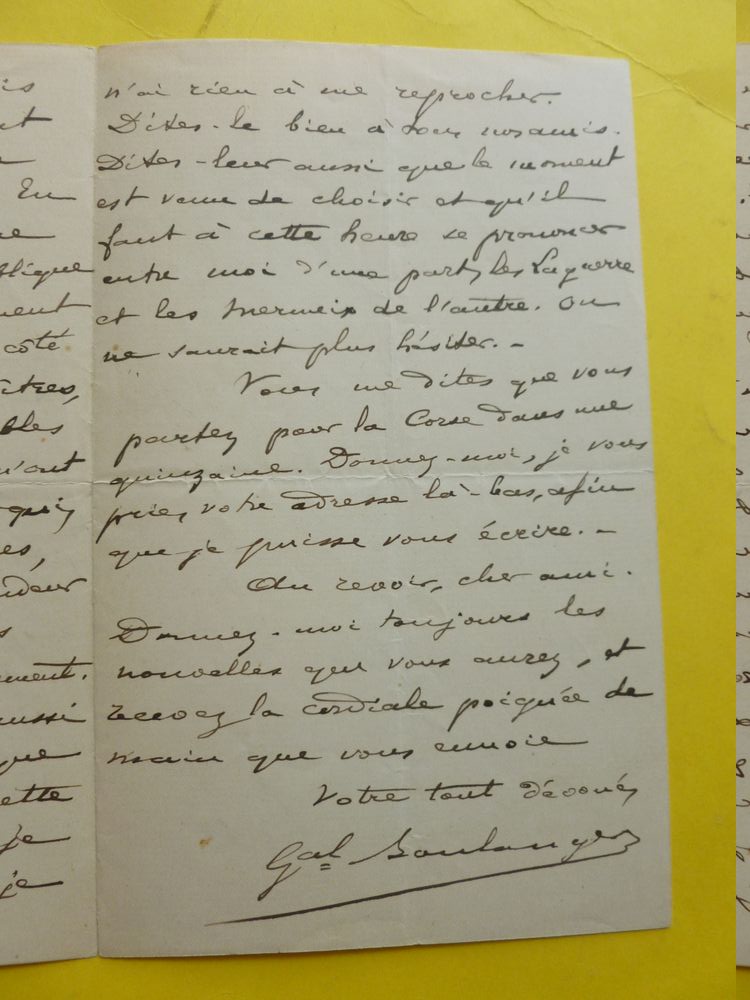 is
nt
En
ne
blique
ment
côté
îtres,
bles
n'ont
quoi,
es,
ndeur
s
ment.
aussi
que
ette
je
je
n'ai rien à me reprocher.
Dites-le bien à tous nos amis.
Dites-leur aussi que le moment
est venu de choisir et qu'il
faut à cette heure se prononcer
entre moi d'une part, les Laguerre
et les Mermeix de l'autre. On
ne saurait plus hésiter. -
Vous me dites que vous
partez pour la Corse dans une
quinzaine. Donnez-moi, je vous
prie, votre adresse là-bas, afin
que je puisse vous écrire. -
Au revoir, cher ami.
Donnez-moi toujours les
nouvelles que vous aurez, et
recevez la cordiale poignée de
main que vous envoie
Votre tout dévoué,
Gal Boulanger